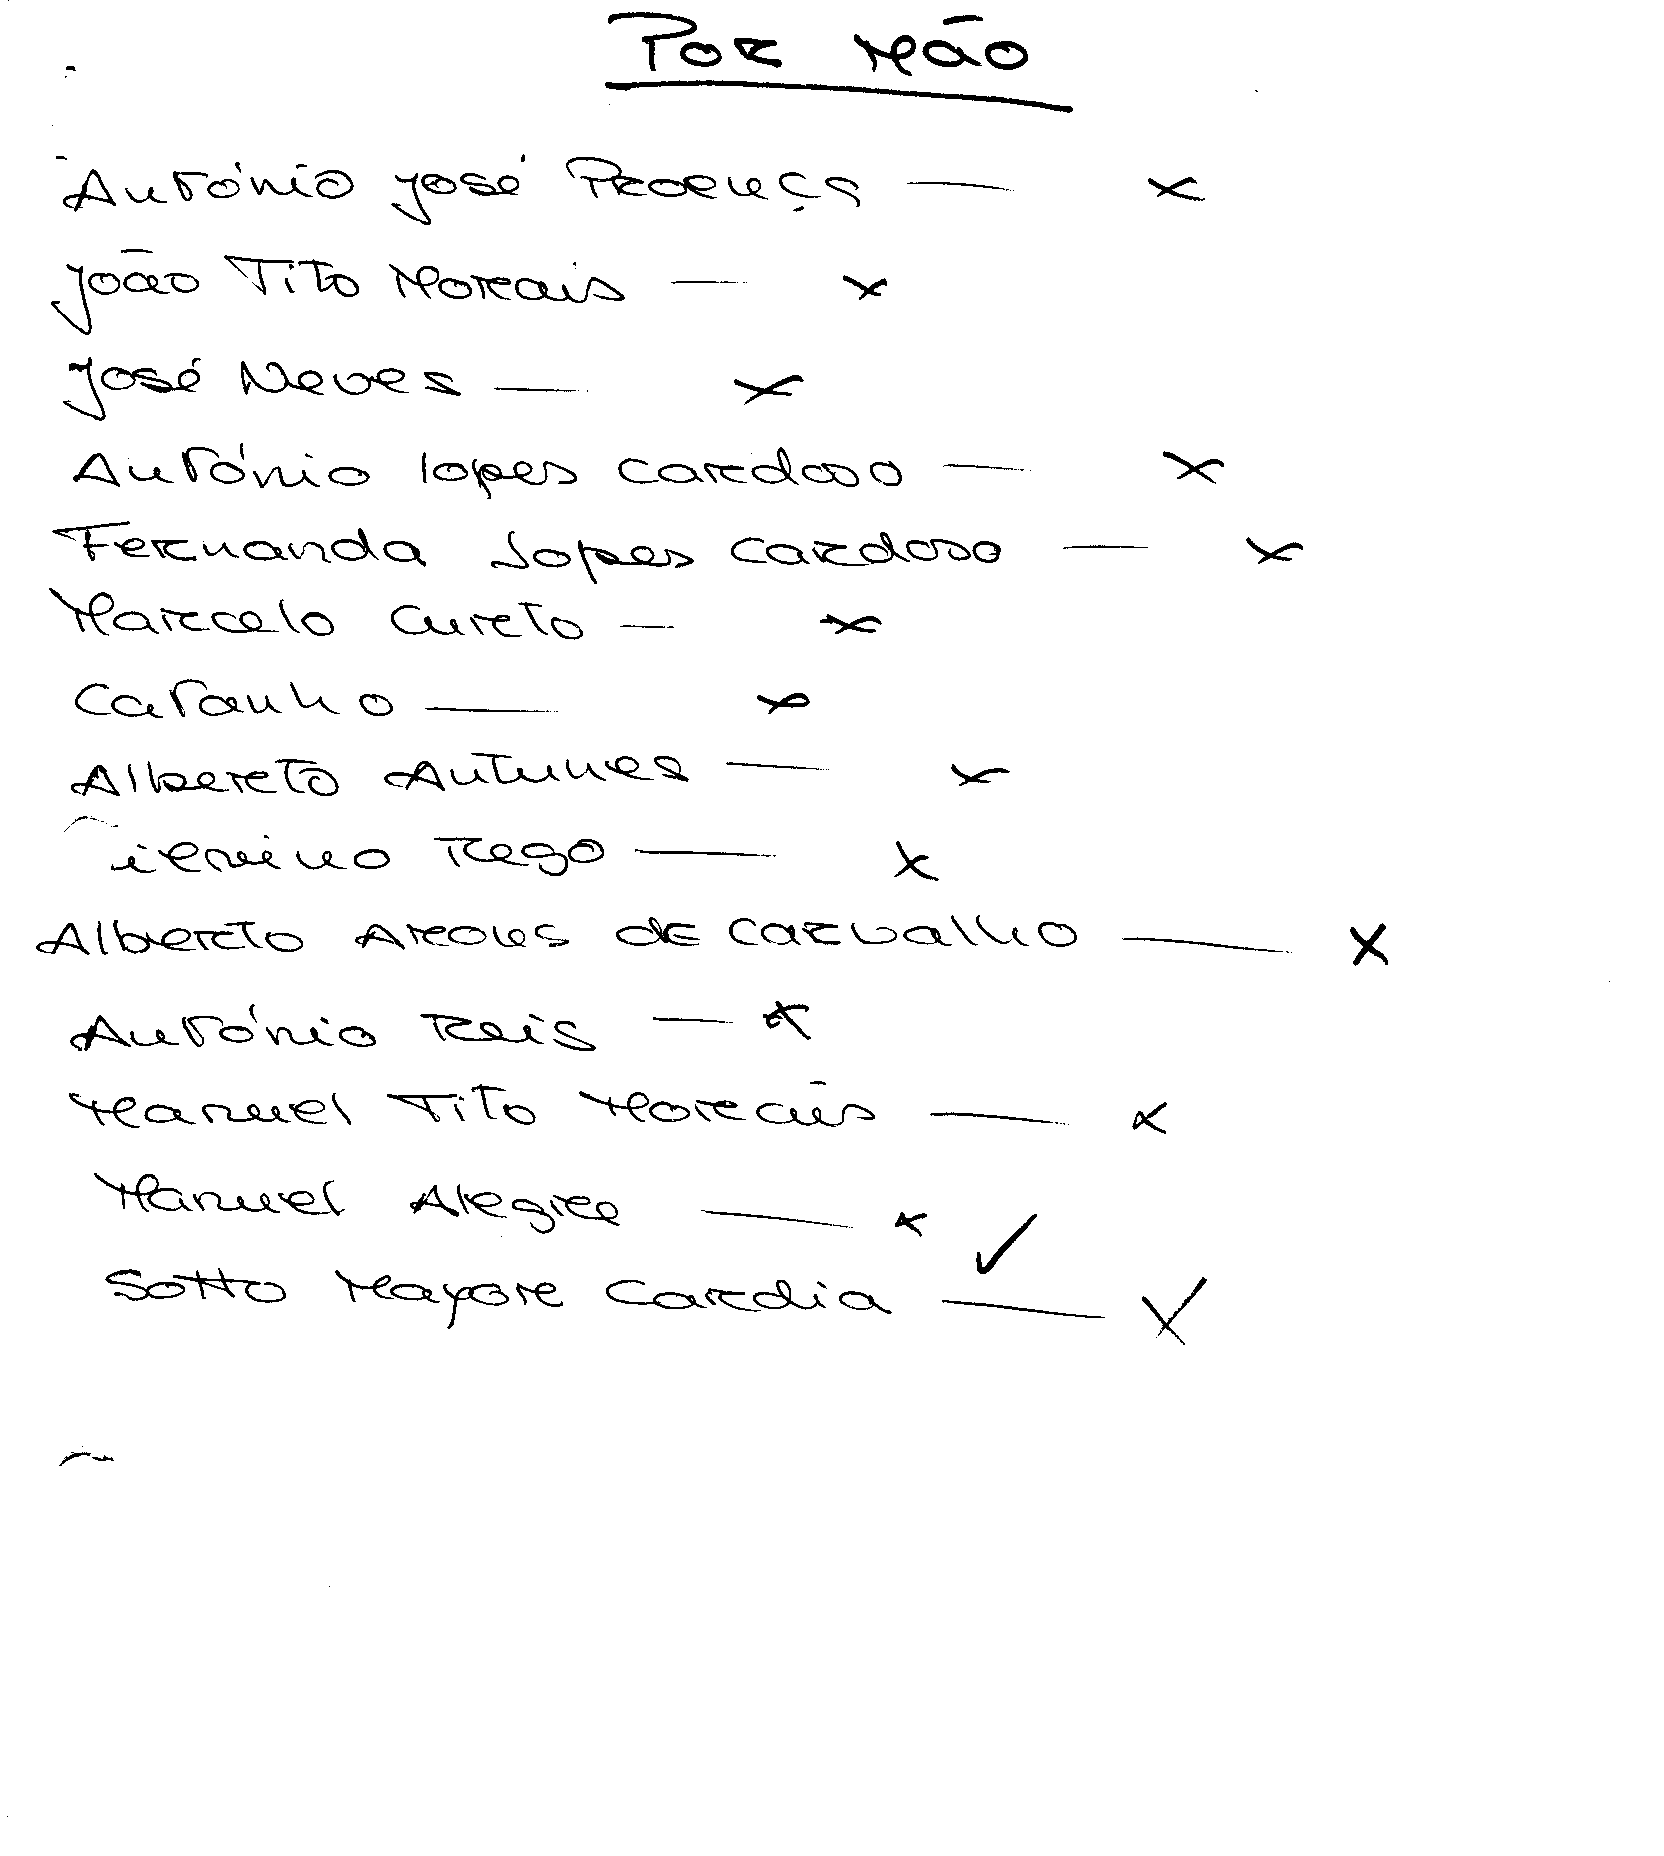 Por Mão
António José Proença — x
João Tito Morais — x
José Neves — x
António Lopes Cardoso — x
Fernanda Lopes Cardoso — x
Marcelo Curto — x
Catanho — x
Alberto Antunes — x
Rego — x
Alberto Arons de Carvalho — x
António Reis — x
Manuel Tito Morais — x
Manuel Alegre — x ✓
Sotto Mayor Cardia — x